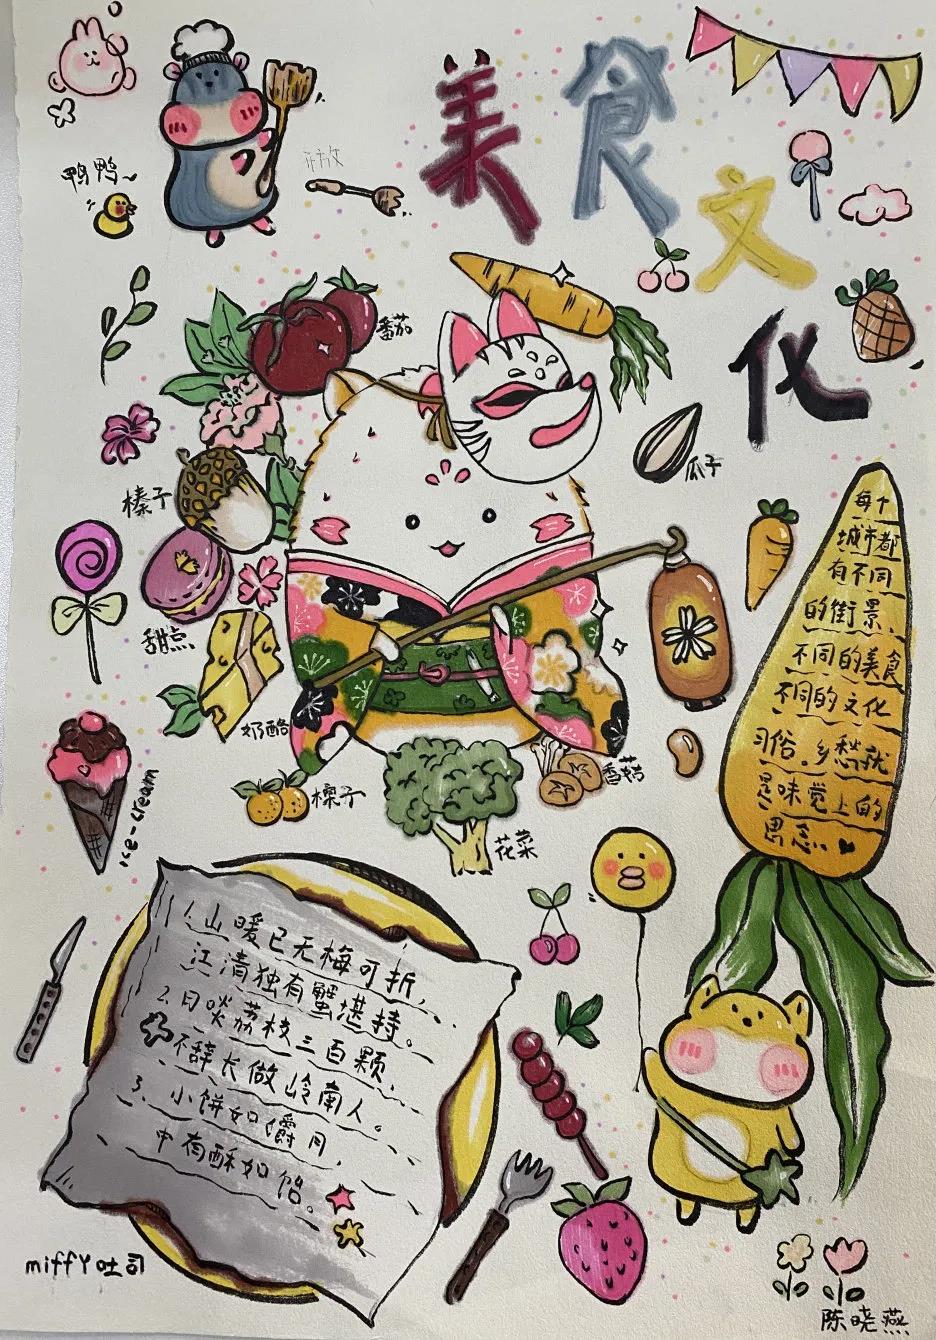 美食文化
鸭鸭~
番茄
瓜子
榛子
甜点
奶酪
香菇
花菜
ice-cream
每个
城市都
有不同
的街景、
不同的美食
不同的文化
习俗。乡愁就
是味觉上的
思念、
1.山暖已无梅可折,
江清独有蟹堪持。
2.日啖荔枝三百颗,
不辞长做岭南人。
3.小饼如嚼月,
中有酥如饴。
miffy吐司
陈晓燕